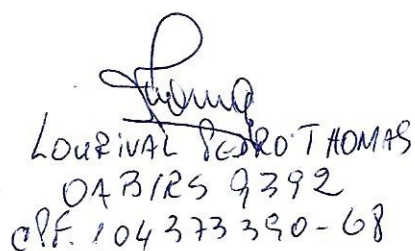 Thomaz
LOURIVAL PEDRO THOMAS
OAB/RS 9392
CPF. 104373390-68